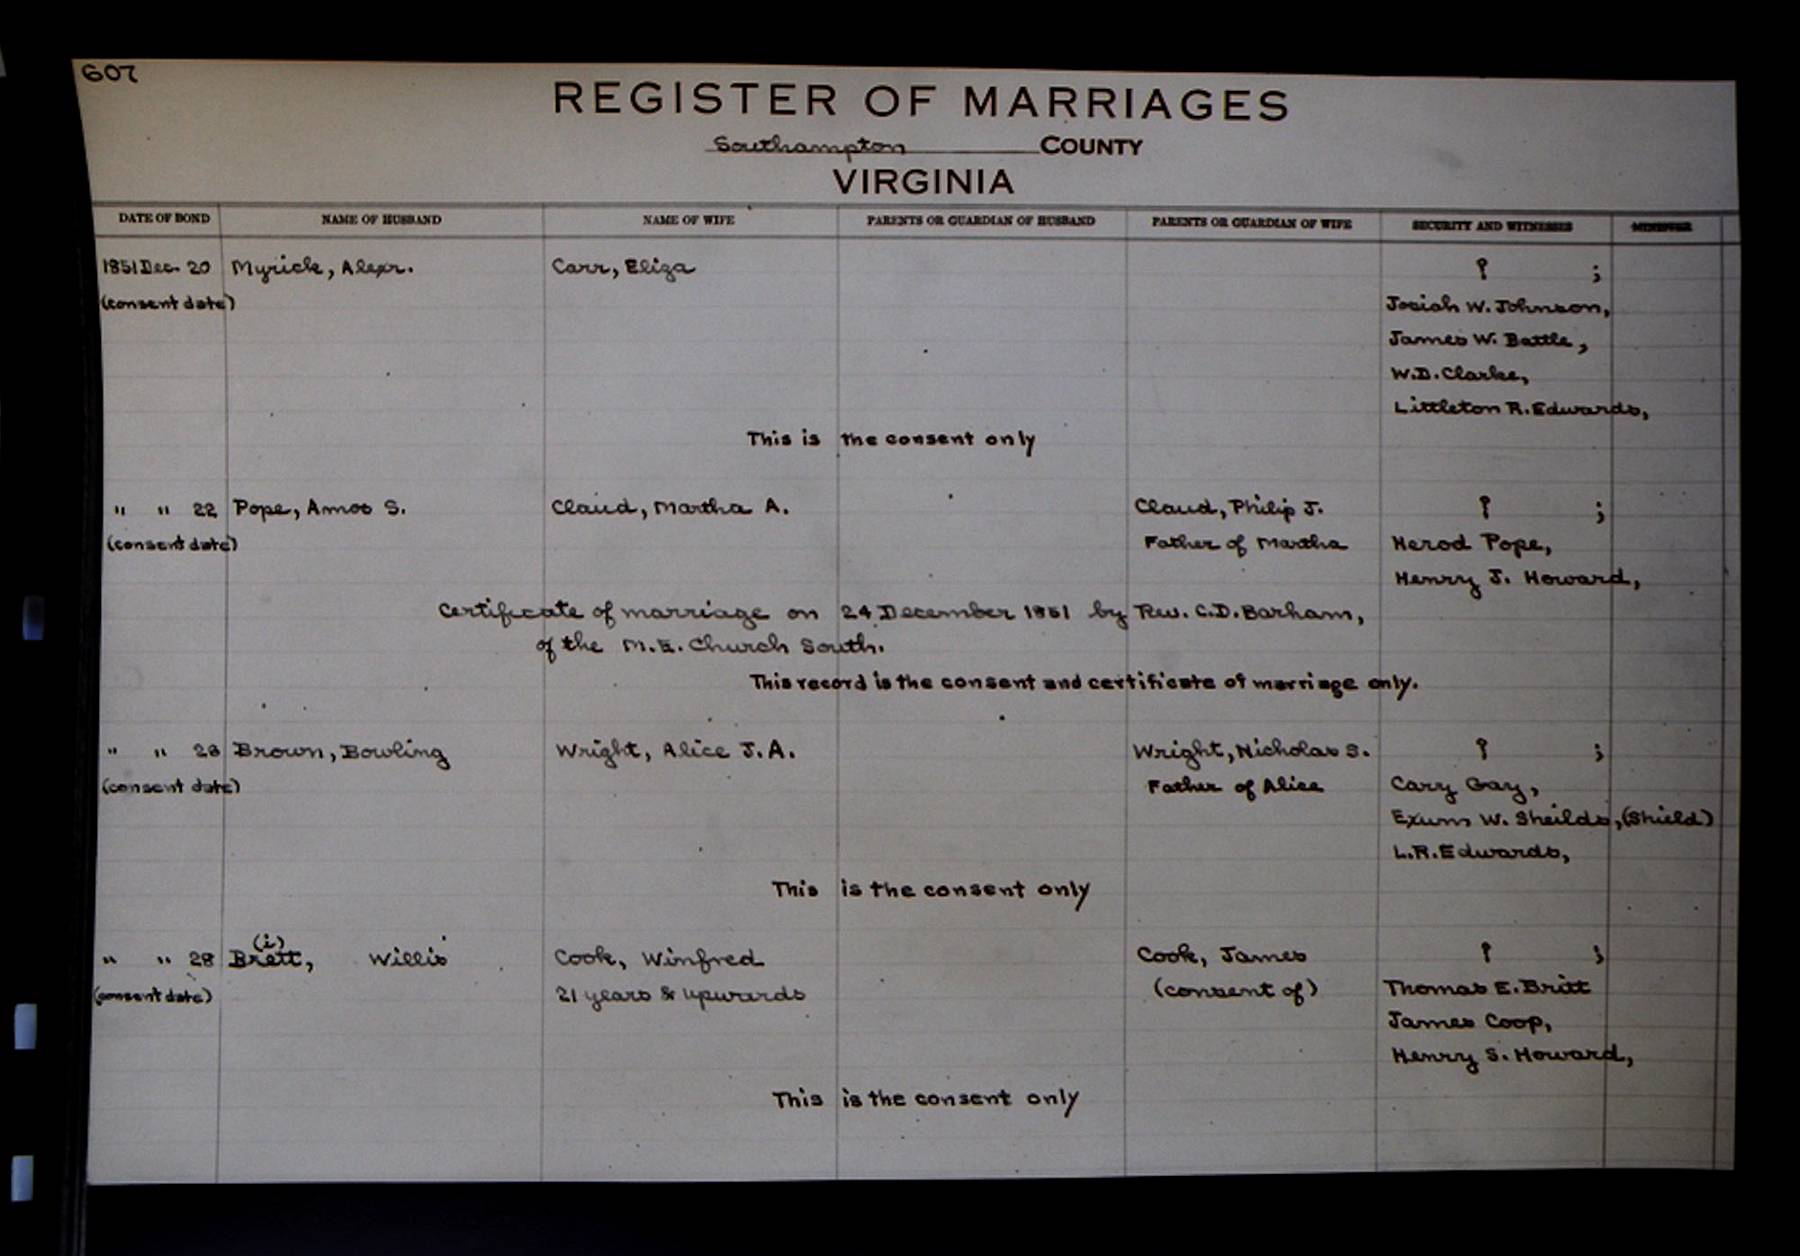 607
REGISTER OF MARRIAGES
Southampton COUNTY
VIRGINIA
DATE OF BOND NAME OF HUSBAND NAME OF WIFE PARENTS OR GUARDIAN OF HUSBAND PARENTS OR GUARDIAN OF WIFE SECURITY AND WITNESSES MINISTER
1851 Dec. 20 Myrick, Alexr. Carr, Eliza ? ;
(consent date) Josiah W. Johnson,
James W. Battle,
W.D. Clarke,
Littleton R. Edwards,
This is the consent only
" " 22 Pope, Amos S. Claud, Martha A. Claud, Philip J. ? ;
(consent date) Father of Martha Herod Pope,
Henry J. Howard,
Certificate of marriage on 24 December 1851 by Rev. C.D. Barham,
of the M.E. Church South.
This record is the consent and certificate of marriage only.
" " 26 Brown, Bowling Wright, Alice J.A. Wright, Nicholas S. ? ;
(consent date) Father of Alice Cary Gay,
Exum W. Sheilds, (Shield)
L.R. Edwards,
This is the consent only
(i)
" " 28 Brett, Willis Cook, Winfred Cook, James ? ;
(consent date) 21 years & upwards (consent of) Thomas E. Britt
James Coop,
Henry S. Howard,
This is the consent only